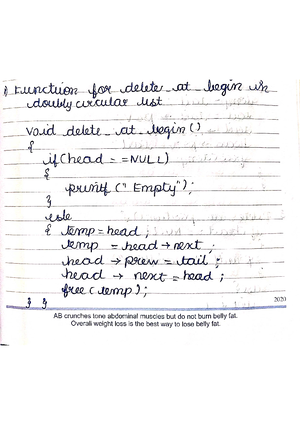 1) Function for delete_at_begin in
doubly circular list
void delete_at_begin()
{
if(head==NULL)
{
printf("Empty");
}
else
{ temp=head;
temp = head→next;
head→prew=tail;
head→ next=head;
free(temp);
} }
2020
AB crunches tone abdominal muscles but do not burn belly fat.
Overall weight loss is the best way to lose belly fat.